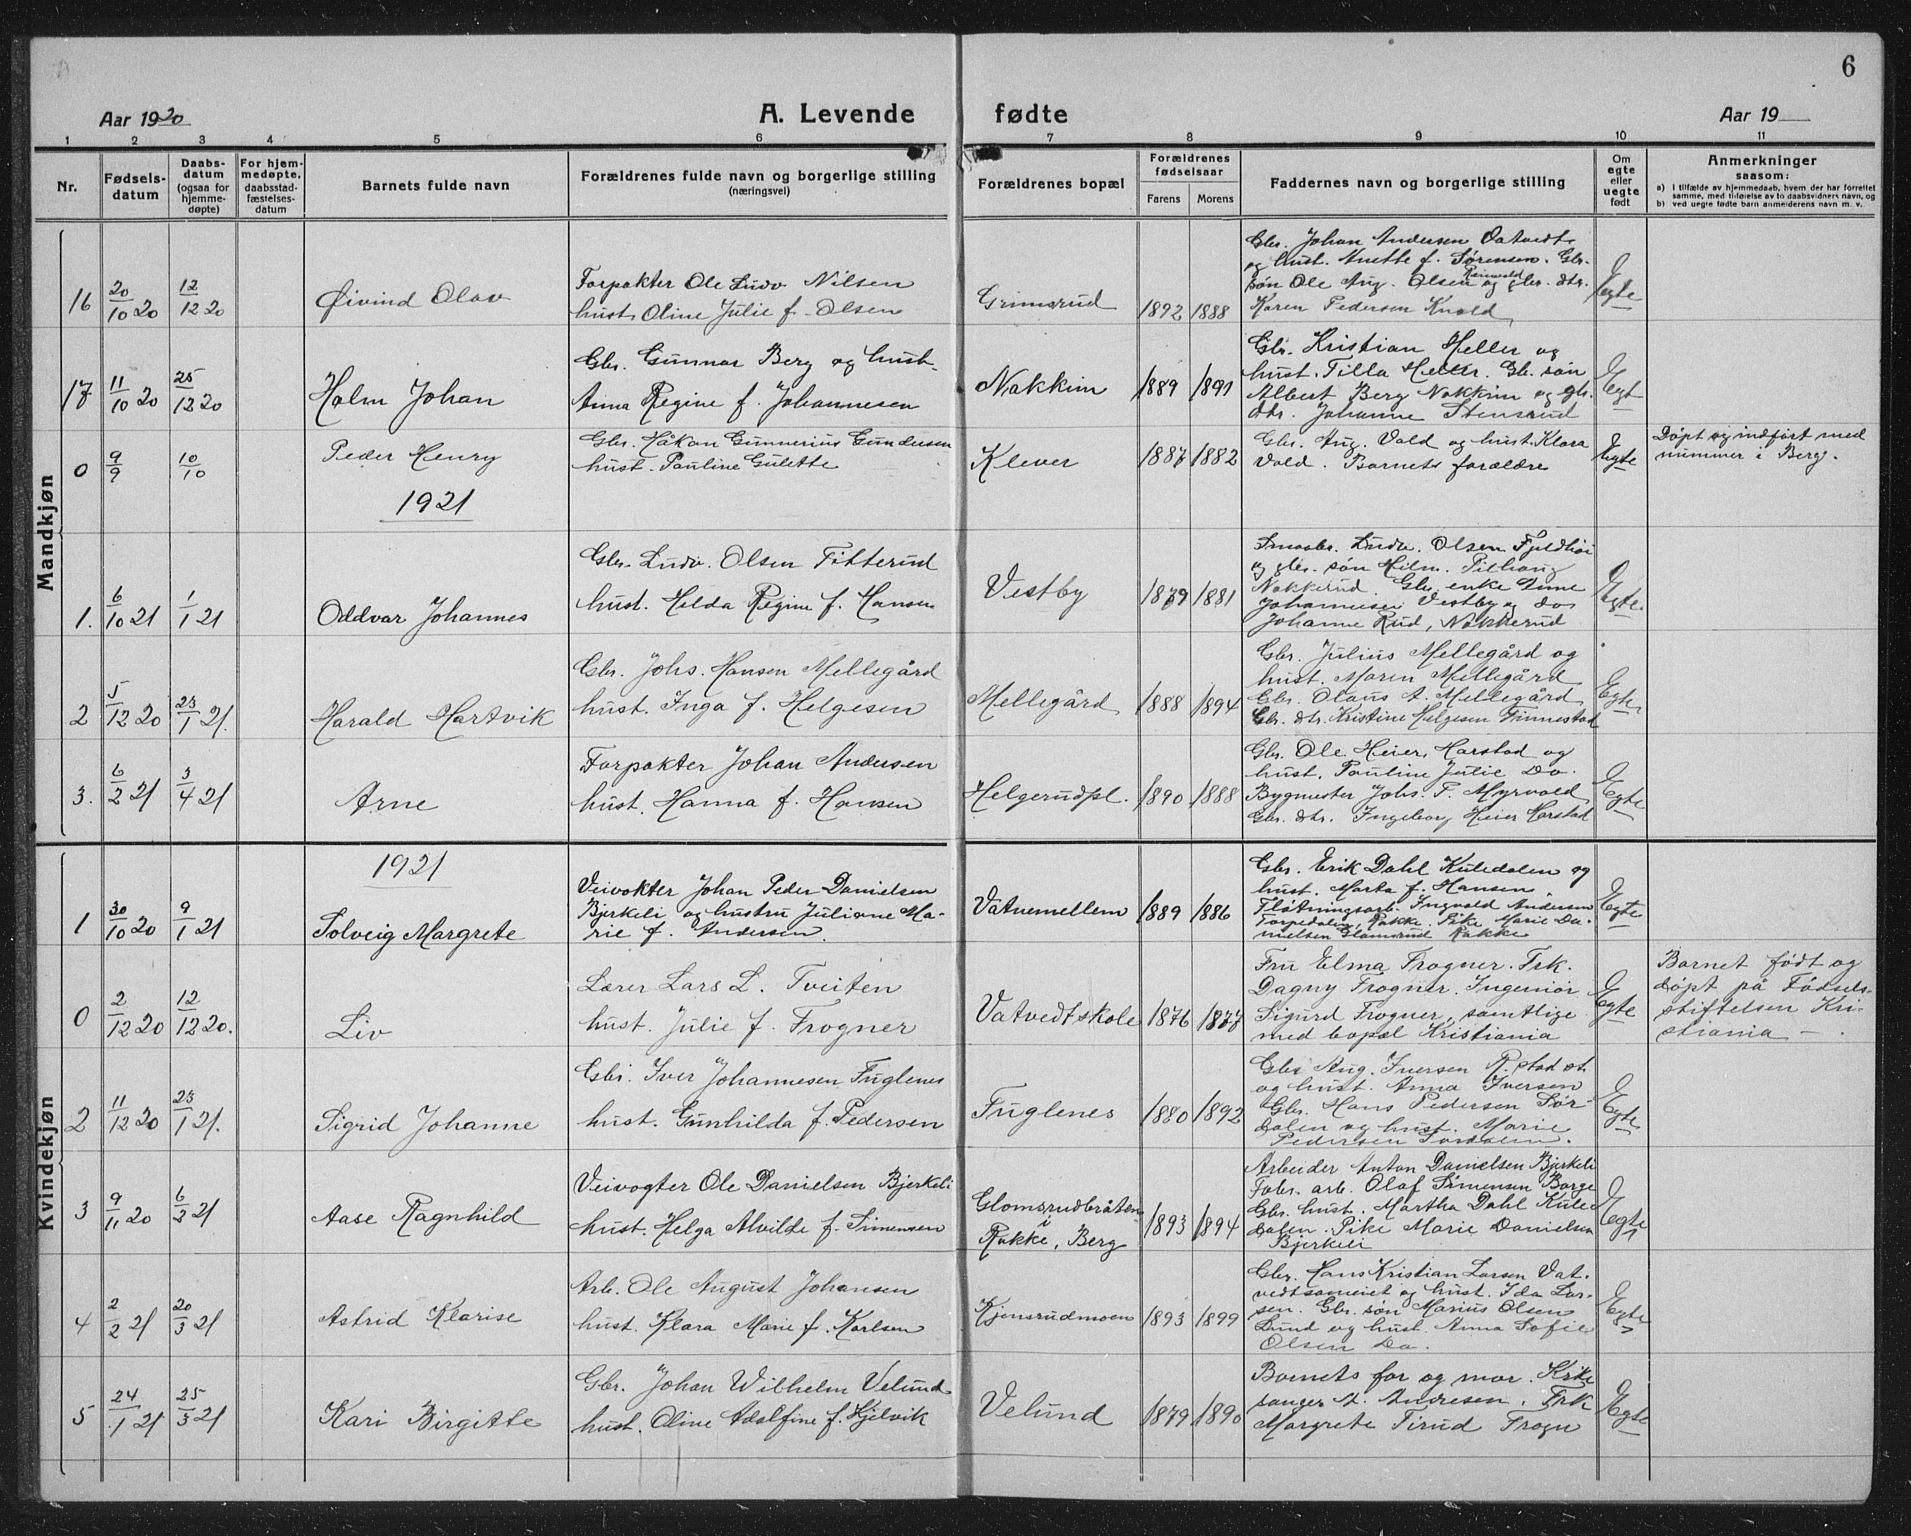 6
Aar 1920
A. Levende fødte
Aar 19
1 2 3 4 5 6 7 8 9 10 11
Nr.
Fødsels-
datum
Daabs-
datum
(ogsaa for
hjemme-
døpte)
For hjem-
medøpte,
daabsstad-
fæstelses-
datum
Barnets fulde navn
Forældrenes fulde navn og borgerlige stilling
(næringsvei)
Forældrenes bopæl
Forældrenes
fødselsaar
Farens Morens
Faddernes navn og borgerlige stilling
Om
egte
eller
uegte
født
Anmerkninger
saasom:
a) i tilfælde av hjemmedaab, hvem der har forrettet
samme, med tilføielse av to daabsvidners navn, og
b) ved uegte fødte barn anmelderens navn m. v.
Mandkjøn
16 20/10 20 12/12 20 Øivind Olav
Forpakter Ole Ludv Nilsen
hust. Oline Julie f. Olsen
Grimsrud 1892 1888
Gbr. Johan Andersen Vatvedt
og hust. Anette f. Sørensen. Gbr.
søn Ole Aug. Olsen og gbr. dtr.
Karen Pedersen Knold
Egte
17 11/10 20 25/12 20 Holm Johan
Gbr. Gunnar Berg og hust.
Anna Regine f. Johannesen
Nokkim 1889 1891
Gbr. Kristian Heller og
hust. Tilla Heller. Gb. søn
Albert Berg Nokkim og gbr.
dtr. Johanne Stensrud
Egt
0 9/9 10/10 Peder Henry
Gbr. Håkon Gunnerius Gundersen
hust. Pauline Gulette
Klever 1887 1882
Gbr. Aug. Vold og hust. Klara
Vold. Barnets forældre
Egte
Døpt og indført med
nummer i Berg.
1921
1. 6/10 21 1/1 21 Oddvar Johannes
Gbr. Ludv. Olsen Fitterud
hust. Helda Regine f. Hansen
Vestby 1879 1881
Smaabr. Ludv. Olsen
og gbr. søn Hilm.
Nokkerud. Gbr. enke
Johannesen Vestby og do
Johanne Rud, Nokkerud
Egte.
2 5/12 20 23/1 21. Harald Hartvik
Gbr. Johs. Hansen Mellegård
hust. Inga f. Helgesen
Mellegård 1888 1894
Gbr. Julius Mellegård og
hust. Maren Mellegård
Gbr. Olaus A. Mellegård
Gbr. dtr. Kristine Helgesen
Egte
3. 6/2 21 3/4 21 Arne
Forpakter Johan Andersen
hust. Hanna f. Hansen
Helgerudpl. 1890 1888
Gbr. Ole Heier Harstad og
hust. Pauline Julie Do.
Bygmester Johs. F. Myrvold
Gbr. dtr. Ingeborg Heier Harstad
Egte
Kvindekjøn
1921
1 30/10 20 9/1 21 Solveig Margrete
Veivokter Johan Peder Danielsen
Bjerkeli og hustru Juliane Ma-
rie f. Andersen.
Vatnemellem 1889 1886
Gbr. Erik Dahl Kuledalen og
hust. Marta f. Hansen.
Fløtningsarb. Ingvald Andersen
Torpedalen, Rakke. Pike Marie Da-
nielsen Glomsrud Rakke
Egte
0 2/12 20 12/12 20. Liv
Lærer Lars L. Tveiten
hust. Julie f. Frogner
Vatvedt skole 1876 1877
Fru Elma Frogner. Frk.
Dagny Frogner. Ingeniør
Sigurd Frogner, samtlige
med bopæl Kristiania
Egte
Barnet født og
døpt på Fødsels-
stiftelsen Kri-
stiania –
2 11/12 20 23/1 21. Sigrid Johanne
Gbr. Iver Johannesen Fuglenes
hust. Gunhilda f. Pedersen
Fuglenes 1880 1892
Gbr. Aug. Iversen
og hust. Anna Iversen
Gbr. Hans Pedersen Sør
dalen og hust. Marie
Pedersen Sørdalen.
Egte
3 9/11 20 6/3 21 Aase Ragnhild
Veivogter Ole Danielsen Bjerkeli
hust. Helga Alvilde f. Simensen
Glomsrudbråten
i
Rakke, Berg 1893 1894
Arbeider Anton Danielsen Bjerkeli
Fabr. arb. Olaf Simensen Borge
Gbr. hust. Martha Dahl Kule
dalen. Pike Marie Danielsen
Bjerkeli
Egte
4 2/2 21 20/3 21 Astrid Klarise
Arb. Ole August Johansen
hust. Klara Marie f. Karlsen
Kjensrudmoen 1893 1899
Gbr. Hans Kristian Larsen Vat-
vedtsameiet og hust. Ida Lar-
sen. Gbr. søn Marius Olsen
Lund og hust. Anna Sofie
Olsen Do.
Egte
5 24/1 21 25/3 21 Kari Birgitte
Gbr. Johan Wilhelm Velund
hust. Oline Adolfine f. Hjelvik
Velund 1879 1890
Barnets far og mor. Kirke
sanger A. Andresen. Frk
Margrete Tirud Trogn
Egte